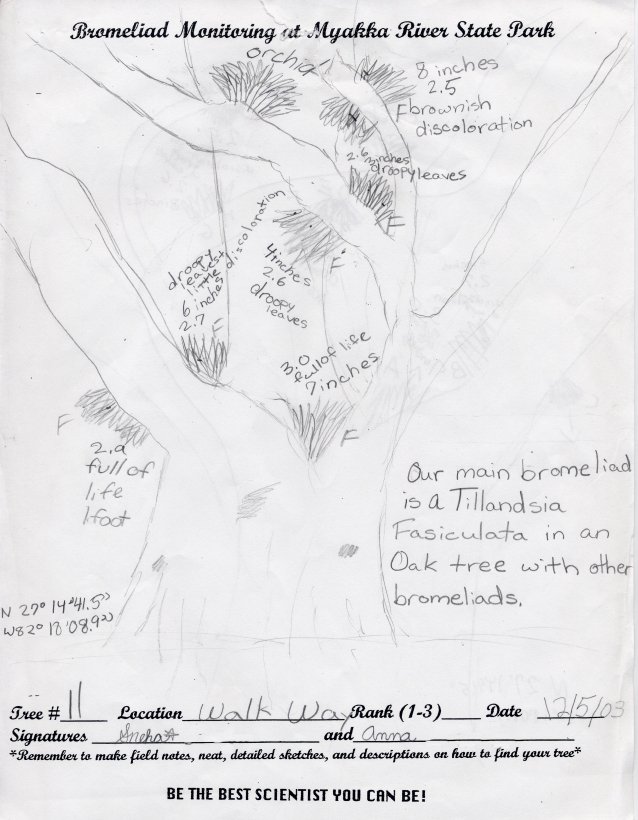 Bromeliad Monitoring at Myakka River State Park
orchid
8 inches
2.5
F brownish
discoloration
2.6 inches
droopy leaves
F
droopy
leaves+
little discoloration
6 inches
2.7
F
4 inches
2.6
droopy
leaves
F
3.0
full of life
7 inches
F
F
2.9
full of
life
1 foot
Our main bromeliad
is a Tillandsia
Fasiculata in an
Oak tree with other
bromeliads.
N 27° 14'41.5"
W82° 18'08.9"
Tree # 11 Location Walk Way Rank (1-3) Date 12/5/03
Signatures Sneha and Anna
*Remember to make field notes, neat, detailed sketches, and descriptions on how to find your tree*
BE THE BEST SCIENTIST YOU CAN BE!